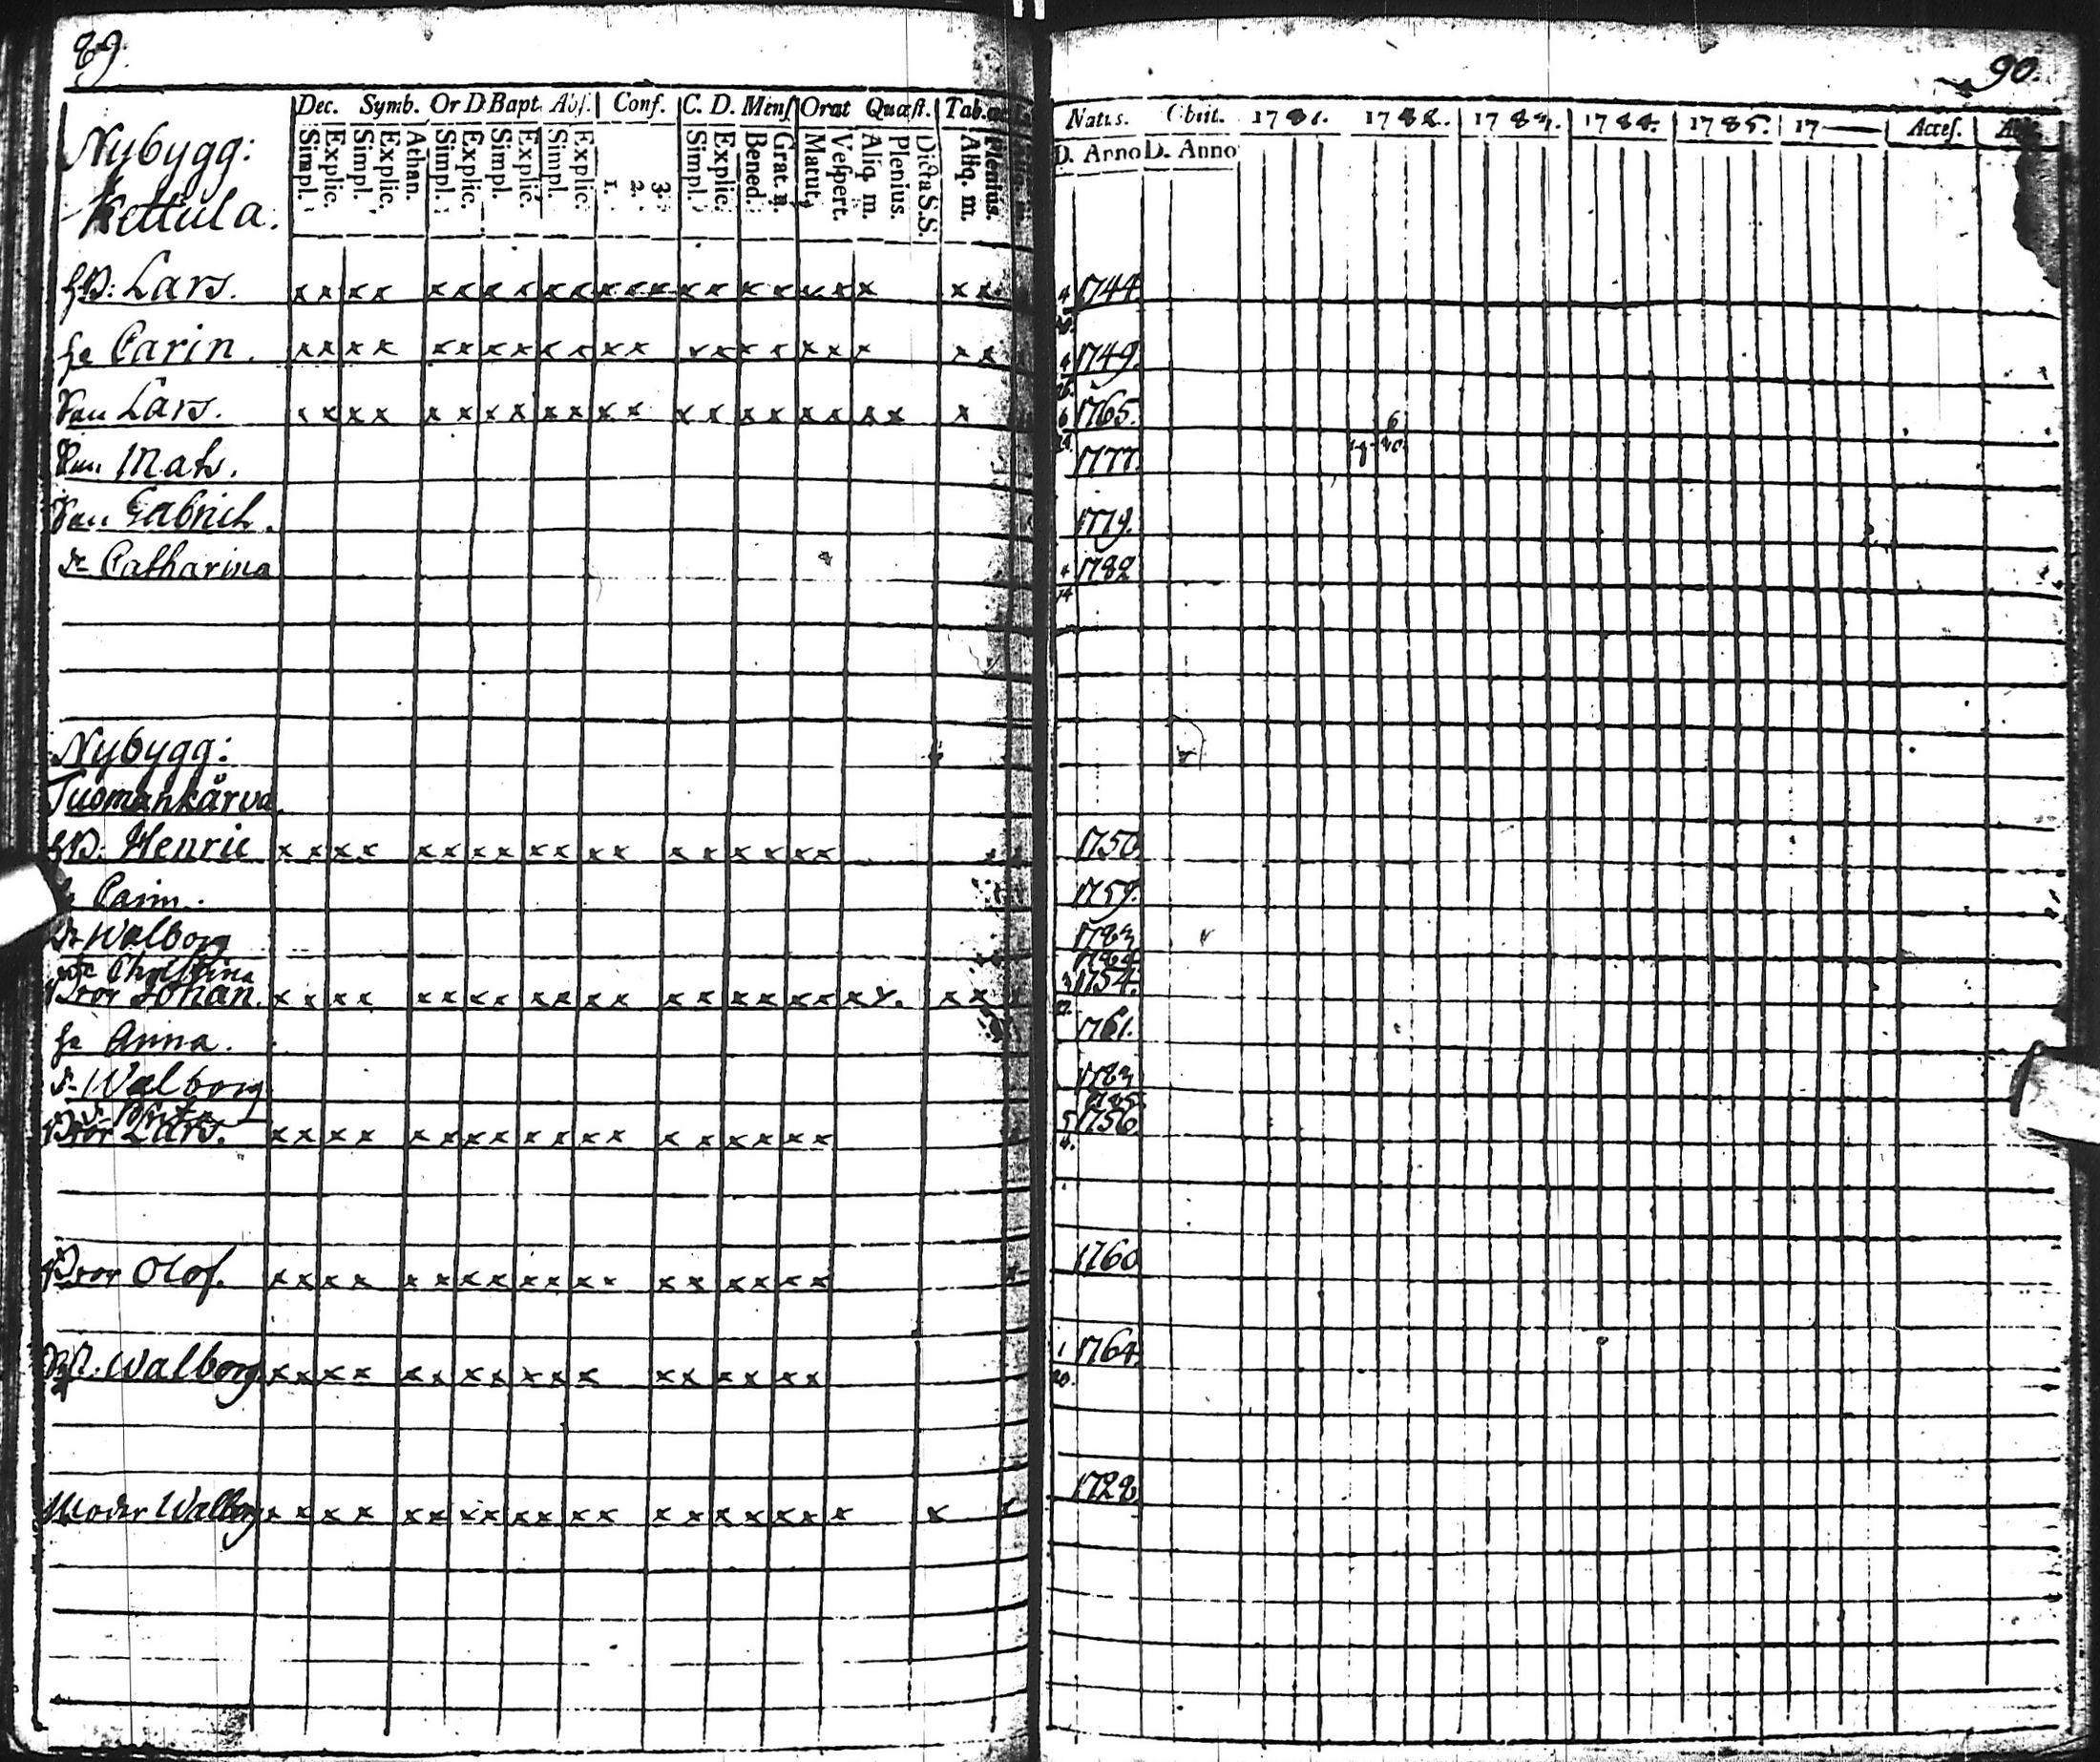 89.
90.
Dec. Symb. Or D Bapt. Abs. Conf. C. D. Mens Orat Quæst. Tab.
Simpl. Explic. Simpl. Explic. Athan. Simpl. Explic. Simpl. Explic. Simpl. Explic. 1. 2. 3. Simpl. Explic. Bened. Grat. Matut. Vespert. Aliq. m. Plenius. Dicta S.S. Aliq. m. Plenius.
Natus. Obiit. 1781. 1782. 1783. 1784. 1785. 17 Acces.
D. Anno D. Anno
Nybygg:
Kettula.
hB: Lars. x x x x x x x x x x x x x x x x x x x x x x x x x 4 1744
ha Carin. x x x x x x x x x x x x x x x x x x x x x x 4 1749.
Son Lars. x x x x x x x x x x x x x x x x x x x x x 6 1765. 6
Son Mats. 1777.
Son Gabriel. 1779.
Dr Catharina 4/14 1782
Nybygg:
Tuomankärva
hB: Henric x x x x x x x x x x x x x x x x 1750
ha Carin. 1759.
Dr Walborg 1783
Dr Christina
Bror Johan. x x x x x x x x x x x x x x x x x x x x 1754.
ha Anna. 1761.
Dr Walborg 1783
Dr Brita 1785
Bror Lars. x x x x x x x x x x x x x x x x x x 5/4. 1756
Bror Olof. x x x x x x x x x x x x x x x x x x 1760
Walborg x x x x x x x x x x x x x x x x x 1/20. 1764
Moder Walborg x x x x x x x x x x x x x x x x x x x x 1728